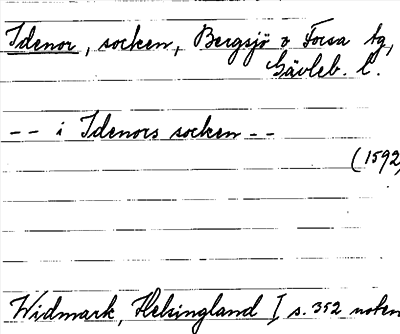 Idenor, socken, Bergsjö o Forsa tg,
Gävleb. l.
-- i Idenors socken --
(1592)
Widmark, Helsingland I s. 352 noten